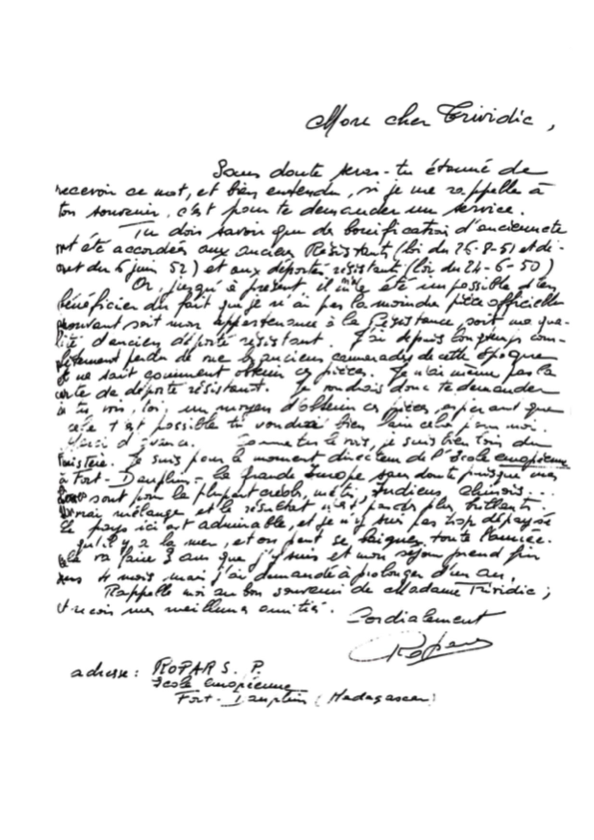 Mon cher Trividic,
Sans doute seras-tu étonné de
recevoir ce mot, et bien entendu, si je me rappelle à
ton souvenir, c'est pour te demander un service.
Tu dois savoir que de bonification d'ancienneté
ont été accordées aux anciens Résistants (loi du 26-8-51 et dé-
cret du 6 juin 52) et aux déportés résistants (loi du 24-6-50)
Or, jusqu'à présent il m'a été impossible d'en
bénéficier du fait que je n'ai pas la moindre pièce officielle
prouvant soit mon appartenance à la Résistance, soit ma qua-
lité d'ancien déporté résistant. J'ai depuis longtemps com-
plètement perdu de vue les anciens camarades de cette époque
et ne sait comment obtenir ces pièces. Je n'ai même pas la
carte de déporté résistant. Je voudrais donc te demander
si tu vois, toi, un moyen d'obtenir ces pièces, espérant que
cela t'est possible tu voudras bien faire cela pour moi.
Merci d'avance. Comme tu le vois, je suis bien loin du
Finistère. Je suis pour le moment directeur de l'École européenne
à Fort-Dauphin - la grande Europe sans doute puisque mes
sont pour la plupart créoles, métis, Indiens, Chinois...
vrai mélange et le résultat n'est pas des plus brillants.
Le pays ici est admirable, et je n'y suis pas trop dépaysé
qu'il y a la mer, et on peut se baigner toute l'année.
va faire 3 ans que j'y suis et mon séjour prend fin
dans 4 mois mais j'ai demandé à prolonger d'un an.
Rappelle moi au bon souvenir de Madame Trividic;
et reçois mes meilleures amitiés.
Cordialement
Ropars
adresse: ROPARS. P.
Ecole européenne
Fort-Dauphin (Madagascar)